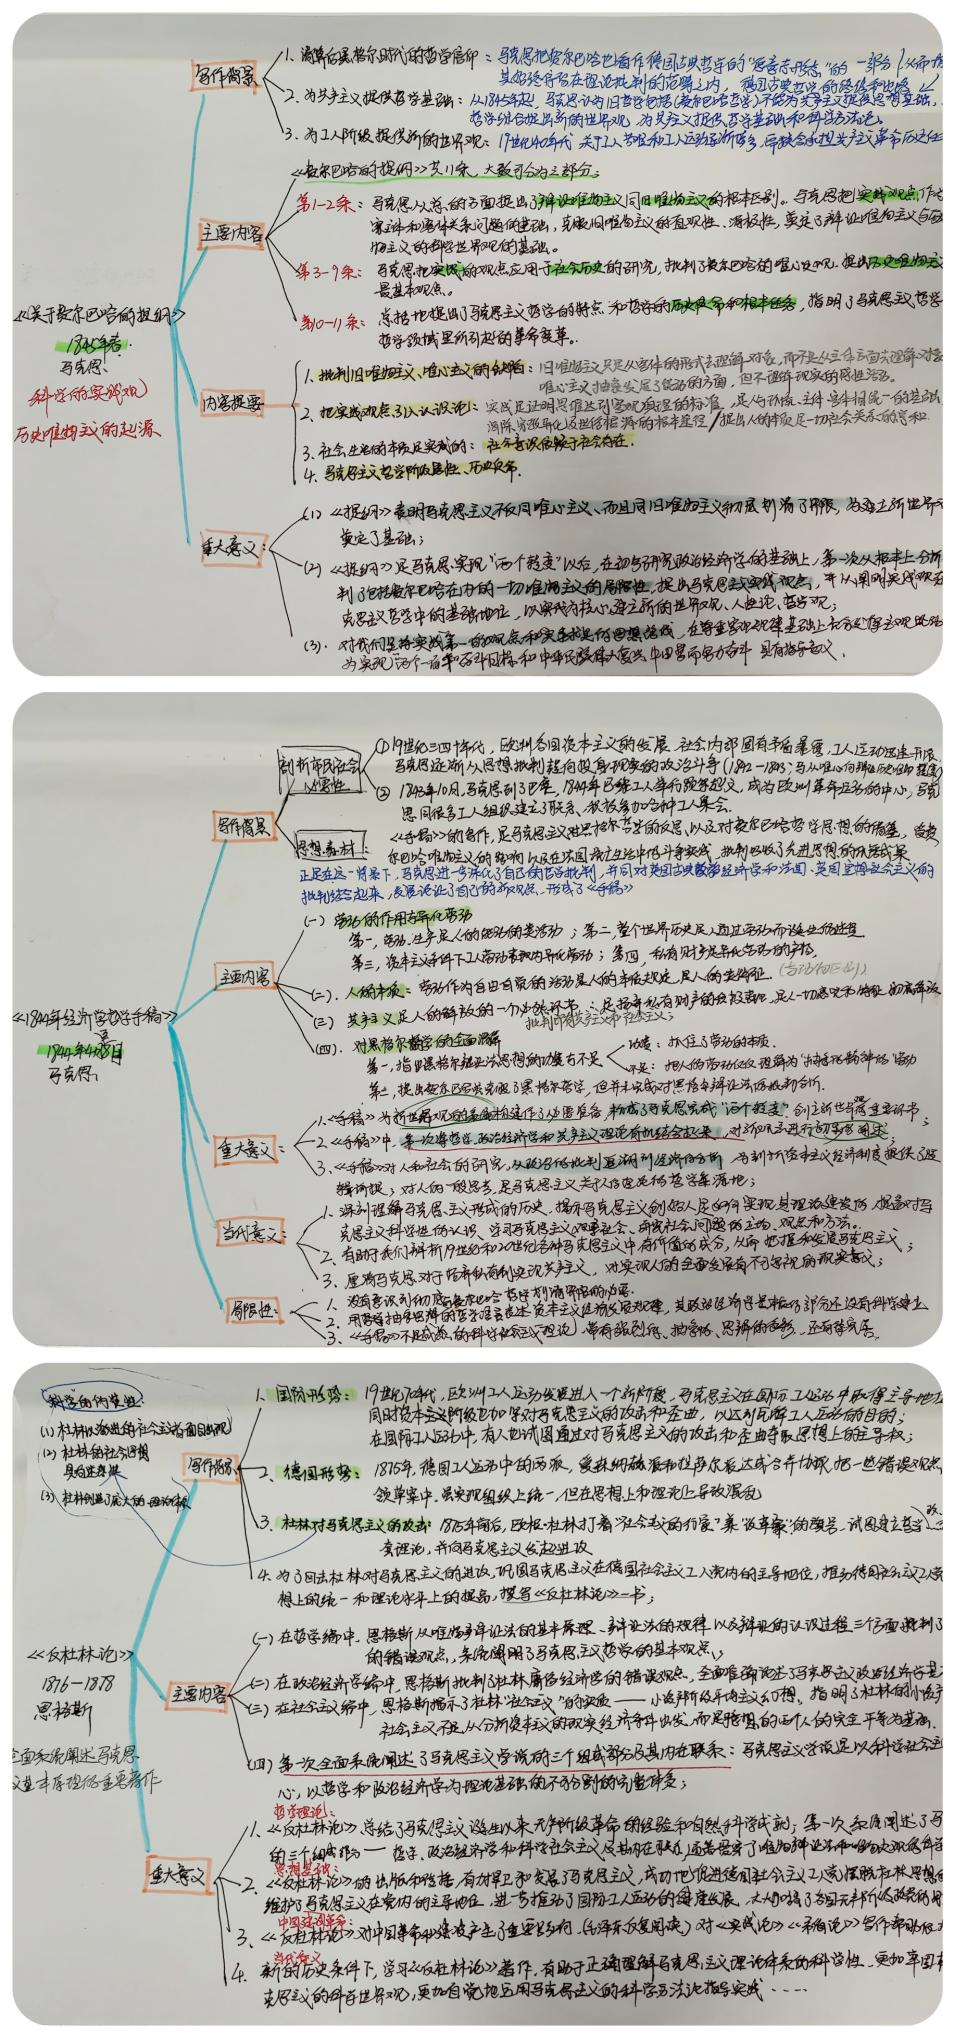 《关于费尔巴哈的提纲》
1845年春
马克思
科学的实践观
历史唯物主义的起源
写作背景
1. 清算向黑格尔时代的哲学信仰：马克思把费尔巴哈也看作德国古典哲学的"意识形态"的一部分
其始终保存在理论批判的范畴之内，德国古典哲学的终结和出路
2. 为共产主义提供哲学基础：从1845年起，马克思认为旧哲学包括(费尔巴哈哲学)不能为共产主义提供思想基础，
哲学组合提出新的世界观，为共产主义提供哲学基础和科学方法论。
3. 为工人阶级提供新的世界观：19世纪40年代
主要内容
《费尔巴哈的提纲》共11条，大致可分为三部分：
第1-2条：马克思从总的方面提出了辩证唯物主义同旧唯物主义的根本区别。马克思把实践观点作
客体和主体关系问题的基础，克服旧唯物主义的直观性、消极性，奠定了辩证唯物主义与历
物主义的科学世界观的基础。
第3-9条：马克思把实践的观点应用于社会历史的研究，批判了费尔巴哈的唯心史观，提出历史唯物主义
最基本观点。
第10-11条：总括地提出了马克思主义哲学的特点和哲学的历史使命和根本任务，指明了马克思主义哲学
哲学领域里所引起的革命变革。
内容提要
1. 批判旧唯物主义、唯心主义的缺陷：旧唯物主义只是从客体的形式去理解对象，而不是从主体方面去理解对象
唯心主义抽象发展了能动的方面，但不理解现实的感性活动。
2. 把实践观点引入认识论：实践是证明思维达到客观真理的标准
提出人的本质是一切社会关系的总和
3. 社会生活的本质是实践的：社会意识依赖于社会存在
4. 马克思主义哲学阶级属性、历史使命
重大意义：
(1)《提纲》表明马克思主义不仅同唯心主义、而且同旧唯物主义彻底划清了界限，为建立新世界观
奠定了基础；
(2)《提纲》是马克思实现"两个转变"以后，在初步研究政治经济学的基础上，第一次从根本上分析
判了包括费尔巴哈在内的一切唯物主义的局限性，提出马克思主义实践观点，并从阐明实践观在
克思主义哲学中的基础地位，以实践为核心建立新的世界观、人性论、哲学观；
(3). 对我们坚持实践第一的观点和实事求是的思想路线，在尊重客观规律基础上充分发挥主观能动
为实现"两个一百年"奋斗目标和中华民族伟大复兴中国梦而努力奋斗具有指导意义。
《1844年经济学哲学手稿》
1844年4月-8月
马克思
写作背景
剖析市民社会
必要性
① 19世纪三四十年代，欧洲各国资本主义的发展，社会内部固有矛盾暴露，工人运动迅速开展
马克思逐渐从思想批判转向投身现实的政治斗争
② 1843年10月，马克思到了巴黎，1844年已经工人举行频繁起义，成为欧洲革命运动的中心，马克
思同很多工人组织建立了联系，积极参加各种工人集会。
思想素材
《手稿》的写作，是马克思主义对黑格尔哲学的反思，以及对费尔巴哈哲学思想的借鉴，
正是在这一背景下，马克思进一步深化了自己的哲学批判，并同对英国古典政治经济学和法国、英国空想社会主义的
批判结合起来，发展论证了自己的新观点，形成了《手稿》
主要内容
(一) 劳动的作用与异化劳动
第一，劳动、生产是人的能动的类活动；第二，整个世界历史是人通过劳动而诞生的过程
第三，资本主义条件下工人劳动表现为异化劳动；第四，私有财产是异化劳动的产物
(二). 人的本质：劳动作为自由自觉的活动是人的本质规定，是人的类特征
(三) 共产主义是人的解放的一个必然环节
(四). 对黑格尔哲学的全面理解
第一，指出黑格尔辩证法思想的功绩与不足
功绩：抓住了劳动的本质。
不足：把人的劳动仅仅理解为"抽象的精神的"劳动
第二，提出费尔巴哈虽克服了黑格尔哲学，但并未完成对黑格尔辩证法的批判分析。
重大意义
1.《手稿》为新世界观的全面构建作了必要准备，构成了马克思完成"两个转变"创立新世界观重要环节；
2.《手稿》中，第一次将哲学、政治经济学和共产主义理论有机结合起来，对新观点进行初步的阐述；
3.《手稿》对人和社会的研究，从政治的批判追溯到经济的分析，为剖析资本主义经济制度提供了逻
辑前提；对人的一般思考，是马克思主义关于人的理论的哲学基础；
当代意义：
1. 深刻理解马克思主义形成的历史，揭示马克思主义创始人是如何实现其理论建设的，提高对马
克思主义科学性的认识，学习马克思主义观察社会、研究社会问题的立场、观点和方法。
2. 有助于我们辨析19世纪和20世纪各种马克思主义中有价值的成分，从而把握和发展马克思主义；
3. 重温马克思对于扬弃私有制实现共产主义，对实现人的全面发展有不可忽视的现实意义；
局限性：
1. 没有意识到彻底与费尔巴哈哲学划清界限的必要
2. 用思辨抽象思辨的哲学语言表述资本主义经济发展规律，其政治经济学是相仍部分还没有科学建立
3.《手稿》不是成熟的科学社会主义理论，带有强烈的、抽象的、思辨的色彩，还有待完善。
科学的偶然性
(1) 杜林以激进的社会主义者面目出现
(2) 杜林的社会思想
(3) 杜林创立了庞大的理论体系
《反杜林论》
1876-1878
恩格斯
全面系统阐述马克思
义基本原理的重要著作
写作背景
1. 国际形势：19世纪70年代，欧洲工人运动发展进入一个新阶段，马克思主义在国际工人运动中取得主导地位
同时资本主义阶级也加紧对马克思主义的攻击和歪曲，以达到瓦解工人运动的目的；
在国际工人运动中，有人也试图通过对马克思主义的攻击和歪曲夺取思想上的主导权；
2. 德国形势：1875年，德国工人运动中的两派，爱森纳赫派和拉萨尔派达成合并协议，把一些错误观点
领草案中，虽实现组织上统一，但在思想上和理论上导致混乱
3. 杜林对马克思主义的攻击：1875年前后，欧根·杜林打着"社会主义的行家"兼"改革家"的旗号，试图建立哲学
类理论，并向马克思主义发起进攻
4. 为了回击杜林对马克思主义的进攻，巩固马克思主义在德国社会主义工人党内的主导地位，推动德国社会主义工党
想上的统一和理论水平上的提高，撰写《反杜林论》一书；
主要内容
(一) 在哲学编中，恩格斯从唯物辩证法的基本原理、辩证法的规律以及辩证的认识过程三个方面批判了
的错误观点，系统阐明了马克思主义哲学的基本观点；
(二) 在政治经济学编中，恩格斯批判了杜林庸俗经济学的错误观点，全面准确论述了马克思主义政治经济学基
(三) 在社会主义编中，恩格斯揭示了杜林"社会主义"的实质——小资产阶级平均主义幻想。指明了杜林的小资产
社会主义不是从分析资本主义的现实经济条件出发，而是臆想的两个人的完全平等为基础。
(四) 第一次全面系统阐述了马克思主义学说的三个组成部分及其内在联系：马克思主义学说是以科学社会主
心，以哲学和政治经济学为理论基础的不可分割的完整体系；
重大意义
哲学理论：
1.《反杜林论》总结了马克思主义诞生以来无产阶级革命的经验和自然科学成就；第一次系统阐述了马
的三个组成部分——哲学、政治经济学和科学社会主义及其内在联系
思想基础：
2.《反杜林论》的出版和传播，有力捍卫和发展了马克思主义，成功地促进德国社会主义工人党摆脱杜林思想的
维护了马克思主义在党内的主导地位，进一步推动了国际工人运动的健康发展
中国建设革命：
3.《反杜林论》对中国革命和建设产生了重要影响，(毛泽东反复阅读)对《实践论》《矛盾论》写作帮助很大
当代意义
4. 新的历史条件下，学习《反杜林论》著作，有助于正确理解马克思主义理论体系的科学性，更加牢固
克思主义的科学世界观，更加自觉地运用马克思主义的科学方法论指导实践……